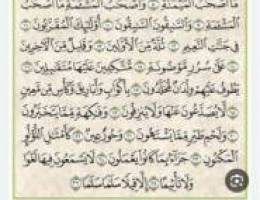 مَآ أَصْحَٰبُ ٱلْمَيْمَنَةِ ۝ وَأَصْحَٰبُ ٱلْمَشْـَٔمَةِ مَآ أَصْحَٰبُ
ٱلْمَشْـَٔمَةِ ۝ وَٱلسَّٰبِقُونَ ٱلسَّٰبِقُونَ ۝ أُو۟لَٰٓئِكَ ٱلْمُقَرَّبُونَ ۝
فِى جَنَّٰتِ ٱلنَّعِيمِ ۝ ثُلَّةٌ مِّنَ ٱلْأَوَّلِينَ ۝ وَقَلِيلٌ مِّنَ ٱلْءَاخِرِينَ
۝ عَلَىٰ سُرُرٍ مَّوْضُونَةٍ ۝ مُّتَّكِـِٔينَ عَلَيْهَا مُتَقَٰبِلِينَ ۝
يَطُوفُ عَلَيْهِمْ وِلْدَٰنٌ مُّخَلَّدُونَ ۝ بِأَكْوَابٍ وَأَبَارِيقَ وَكَأْسٍ مِّن مَّعِينٍ
۝ لَّا يُصَدَّعُونَ عَنْهَا وَلَا يُنزِفُونَ ۝ وَفَٰكِهَةٍ مِّمَّا يَتَخَيَّرُونَ
۝ وَلَحْمِ طَيْرٍ مِّمَّا يَشْتَهُونَ ۝ وَحُورٌ عِينٌ ۝ كَأَمْثَٰلِ ٱللُّؤْلُؤِ
ٱلْمَكْنُونِ ۝ جَزَآءًۢ بِمَا كَانُوا۟ يَعْمَلُونَ ۝ لَا يَسْمَعُونَ فِيهَا لَغْوًا
وَلَا تَأْثِيمًا ۝ إِلَّا قِيلًا سَلَٰمًا سَلَٰمًا ۝